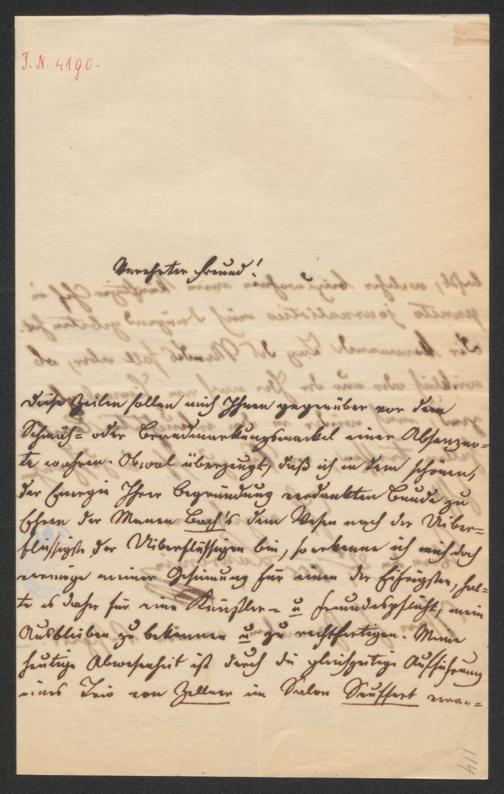 I. N. 4190.
Verehrter Freund!
Diese Zeilen sollen mich Ihnen gegenüber vor dem
Schmäh- oder Brandmarkungsmackel einer Absenzno-
te wahren. Obwol überzeugt, daß ich in dem schönen,
der Energie Ihrer Begründung verdankten Bunde zu
Ehren der Manen Bach's dem Wesen nach der Über-
flüssigste der Überflüssigen bin, so erkenne ich mich doch
vermöge meiner Gesinnung für einen der Eifrigsten, hal-
te es daher für eine Künstler- u Freundespflicht, mein
Ausbleiben zu bekennen u zu rechtfertigen. Meine
heutige Abwesenheit ist durch die gleichzeitige Aufführung
eines Trio von Zellner im Salon Seuffert veran-
114